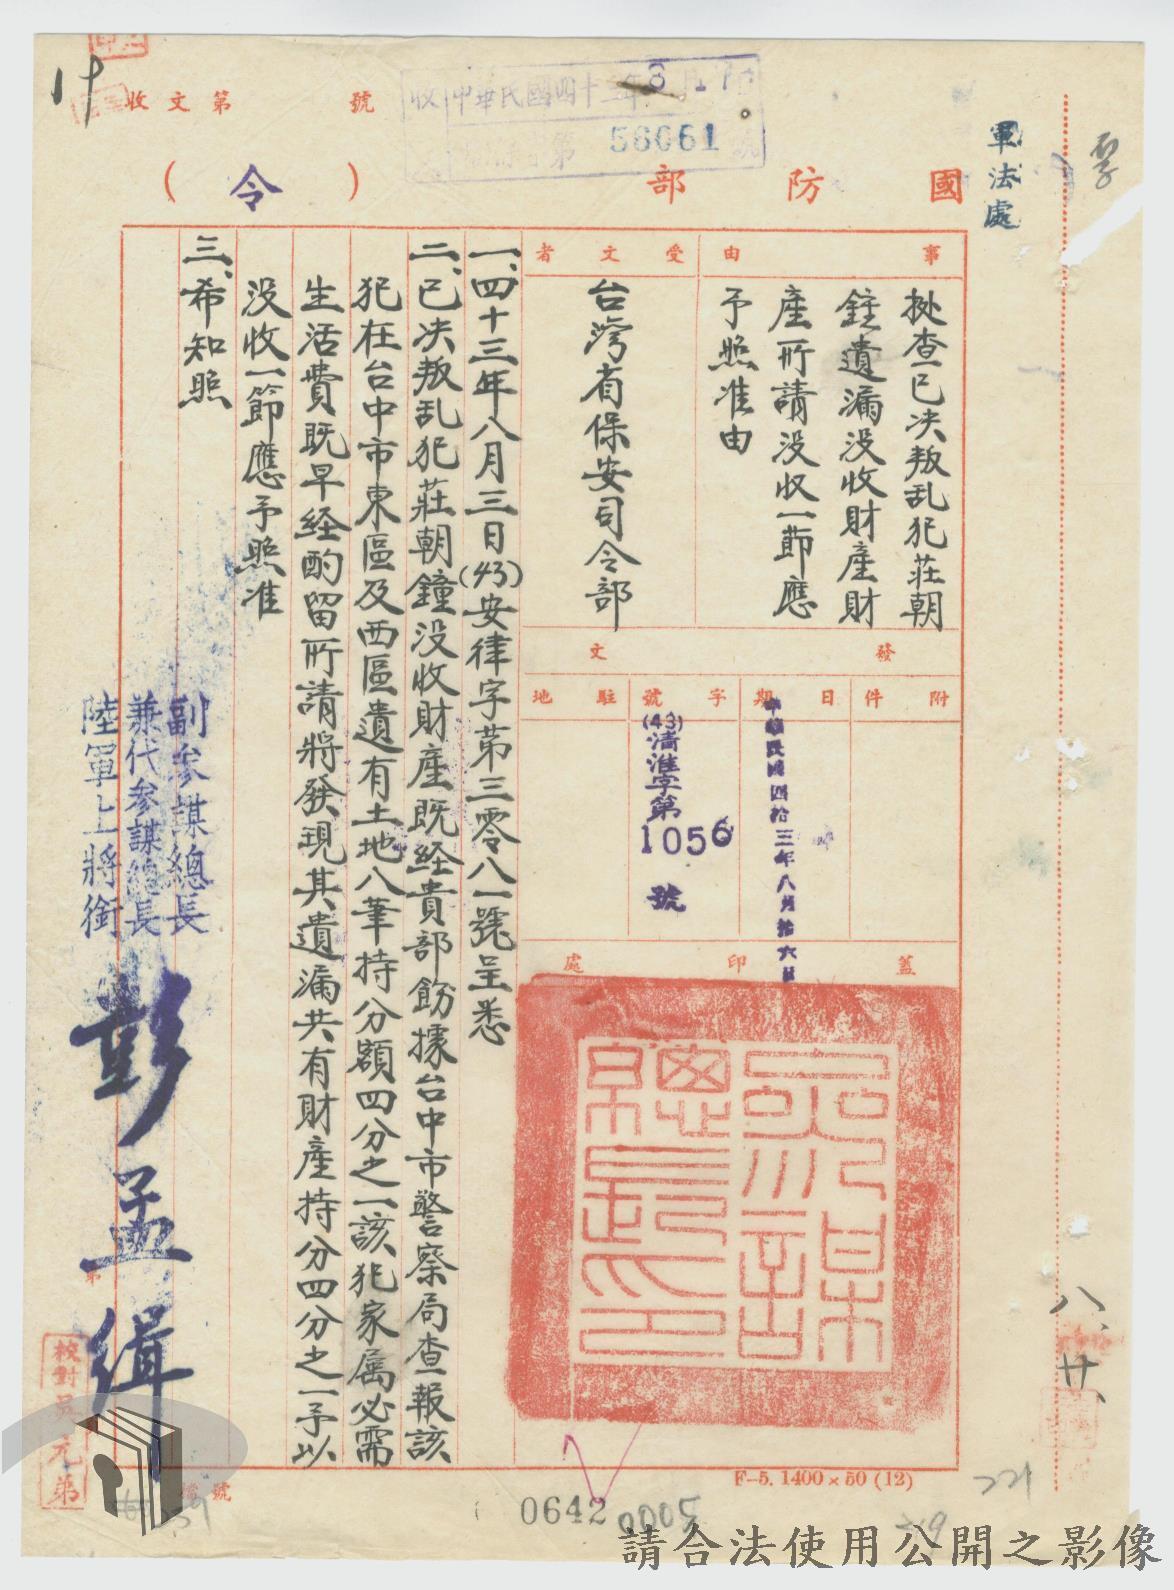 收文第 號
收 中華民國四十三年8月17日
字第56061號
國防部
(令)
軍法處
事由
挑查已决叛乱犯莊朝
鐘遺漏没收財產財
產所請没收一節應
予照准由
受文者
台灣省保安司令部
發文
附件
日期
中華民國四拾三年八月拾六日
字號
(43)清淮字第1056號
駐地
蓋印處
參謀總長印
一、四十三年八月三日(43)安律字第三零八一號呈悉
二、已决叛乱犯莊朝鐘没收財產既经貴部飭據台中市警察局查報該
犯在台中市東區及西區遺有土地八筆持分額四分之一該犯家属必需
生活費既早经酌留所請將發現其遺漏共有財產持分四分之一予以
没收一節應予照准
三、希知照
副參謀總長
兼代參謀總長
陸軍上將銜
彭孟緝
校對吳元弟
檔號
八、廿、
F-5. 1400×50 (12)
0642
0005
219
221
請合法使用公開之影像